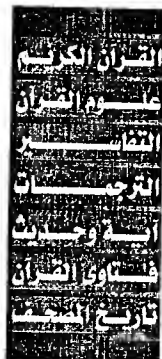 القرآن الكريم
علوم القرآن
التفاسير
الترجمات
آية وحديث
فتاوى القرآن
تاريخ المصحف